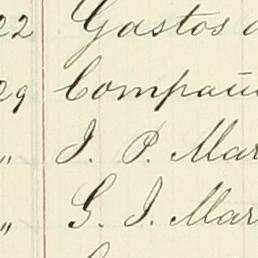 22 Gastos
29 Compañi
" J. P. Mar
" G. J. Mar